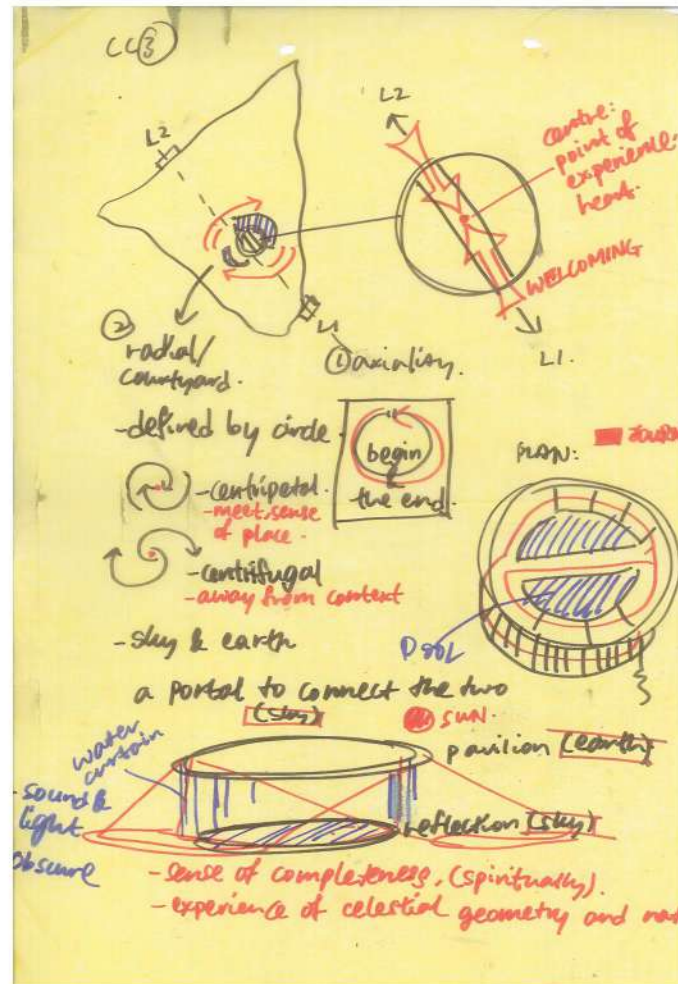 CC③
L2
L2
centre:
point of
experience.
heart.
WELCOMING
L1
L1.
① axiality.
②
radial/
courtyard.
-defined by circle.
begin
the end.
PLAN:
-centripetal.
-meet, sense
of place.
-centrifugal
-away from context
POOL
-sky & earth
a portal to connect the two
(sky)
SUN.
pavilion (earth)
water
curtain
-sound &
light
obscure
reflection (sky)
-sense of completeness, (spiritually).
-experience of celestial geometry and